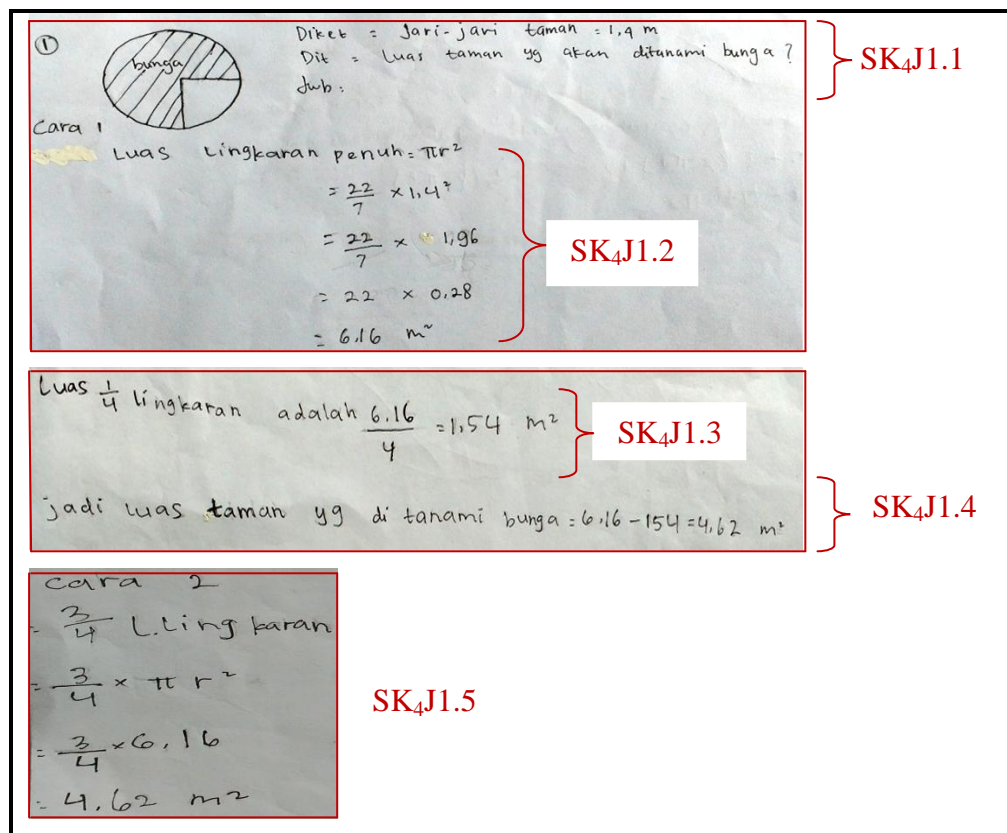 ① Diket = Jari-jari taman = 1,4 m
bunga Dit = Luas taman yg akan ditanami bunga ?
Jwb :
SK₄J1.1
Cara 1
Luas Lingkaran penuh = πr²
= 22/7 × 1,4²
= 22/7 × 1,96
= 22 × 0,28
= 6,16 m²
SK₄J1.2
Luas 1/4 lingkaran adalah 6,16/4 = 1,54 m²
SK₄J1.3
jadi luas taman yg di tanami bunga = 6,16 - 154 = 4,62 m²
SK₄J1.4
cara 2
= 3/4 L.Lingkaran
= 3/4 × π r²
= 3/4 × 6,16
= 4.62 m²
SK₄J1.5